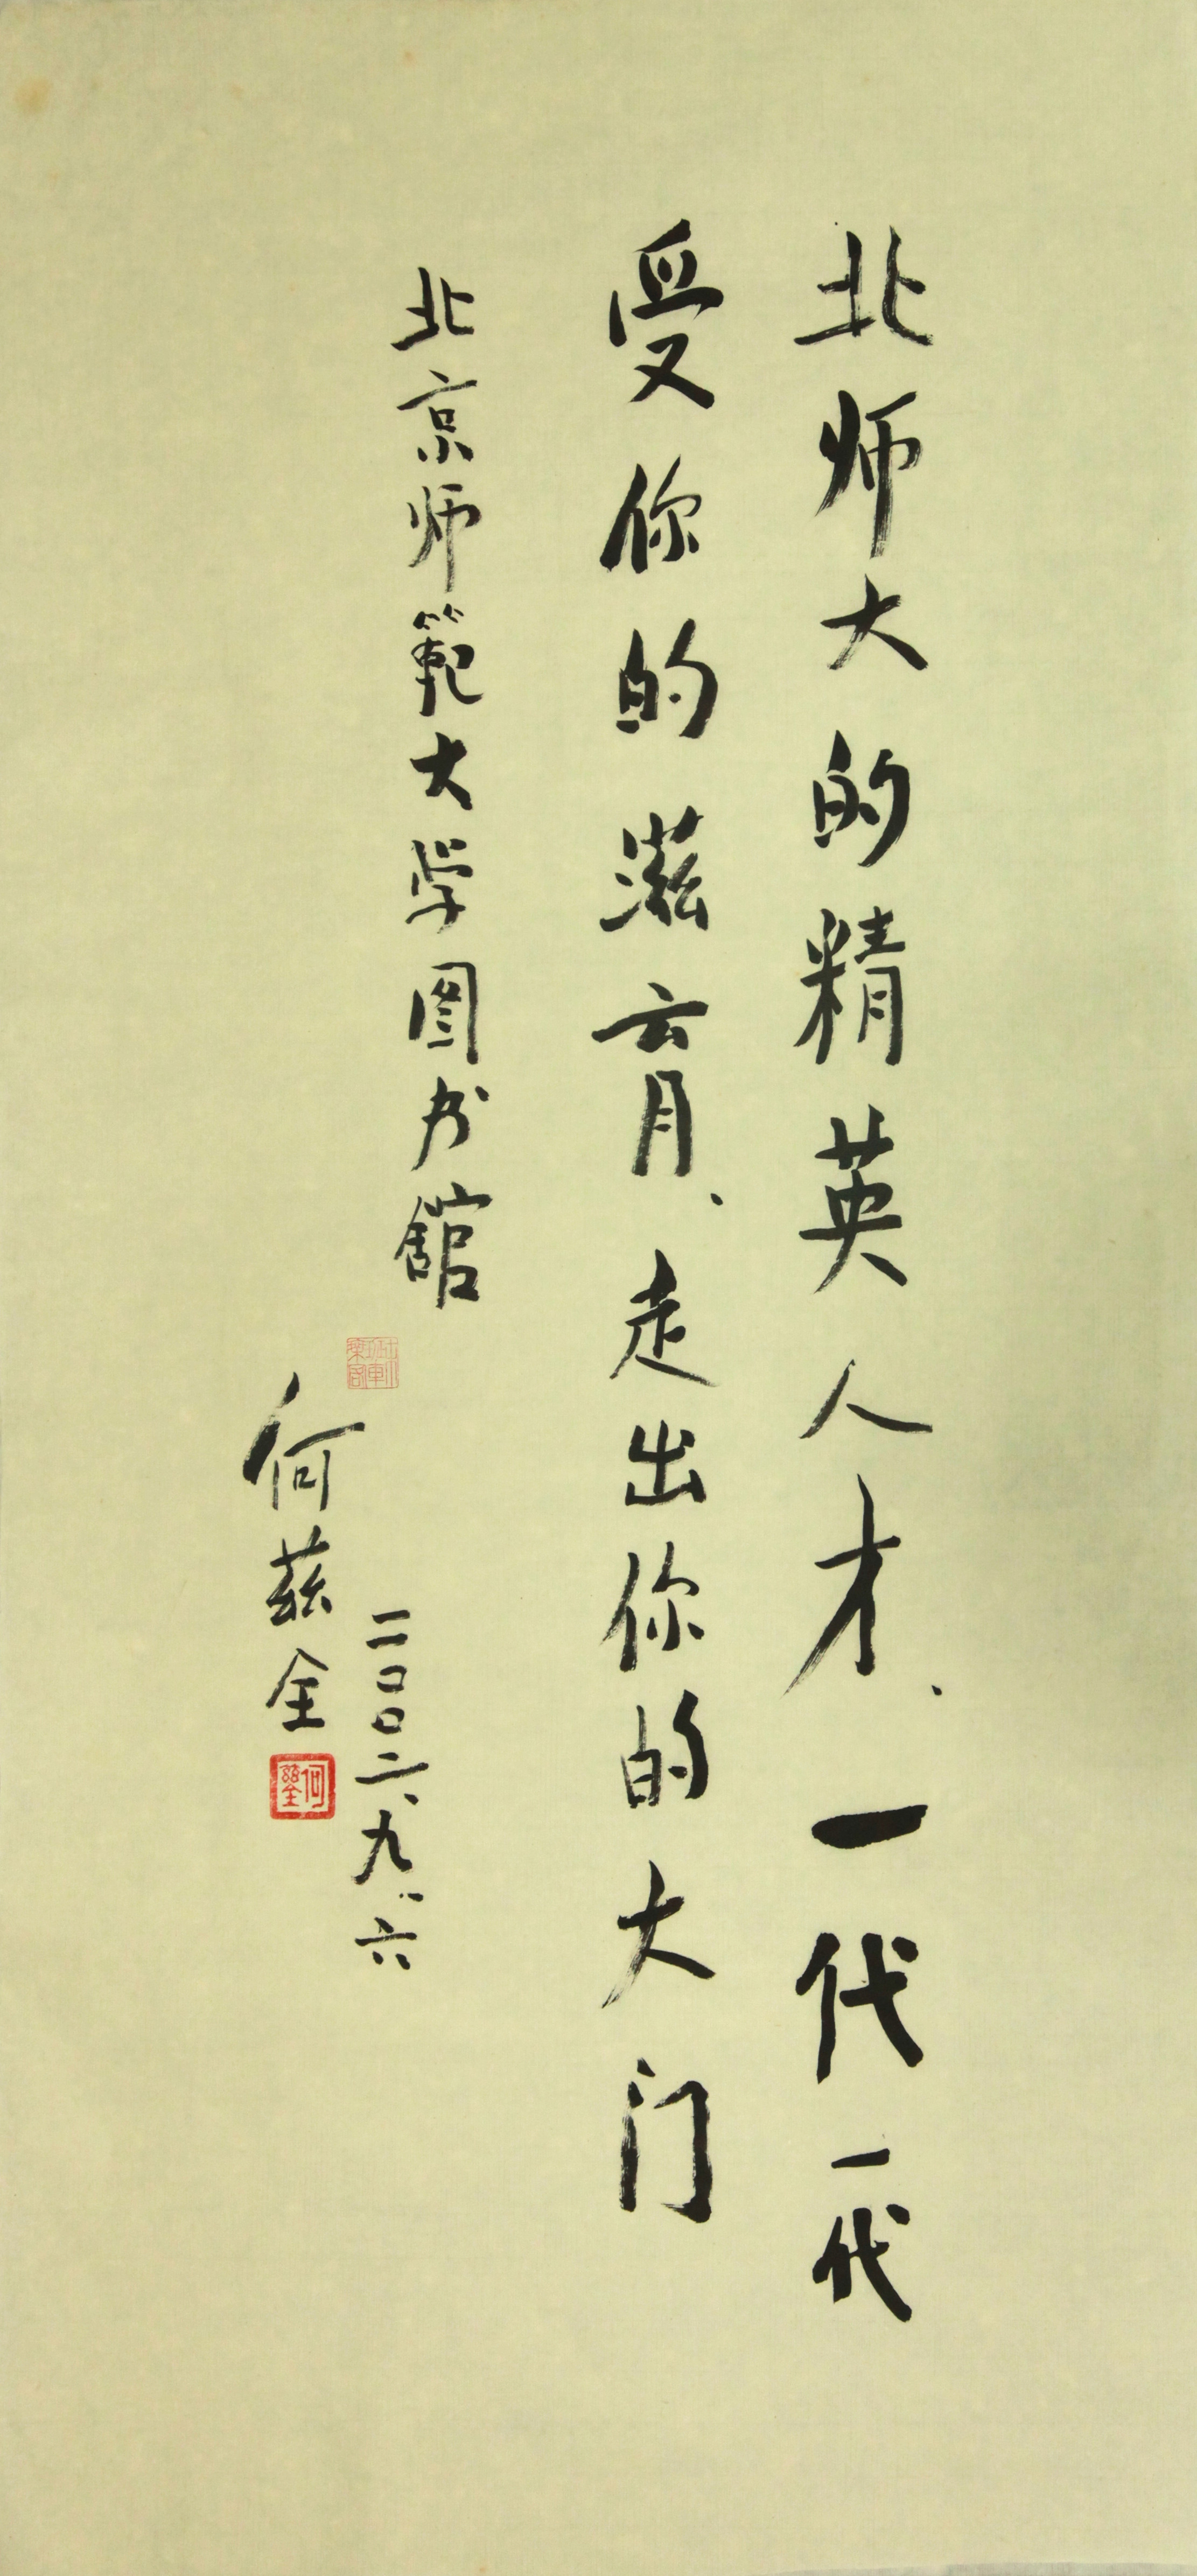 北师大的精英人才、一代一代
受你的滋育、走出你的大门
北京师範大学图书馆
二〇〇二、九、六
何兹全
何兹全